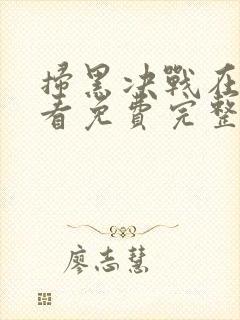 掃黑决戰在
看免費完整
廖志慧